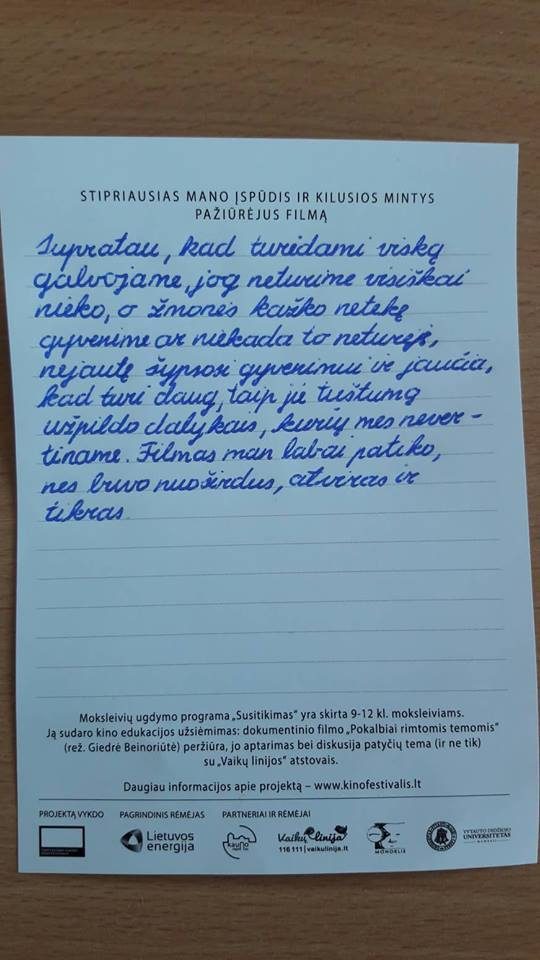 STIPRIAUSIAS MANO ĮSPŪDIS IR KILUSIOS MINTYS
PAŽIŪRĖJUS FILMĄ
Supratau, kad turėdami viską
galvojame, jog neturime visiškai
nieko, o žmonės kažko netekę
gyvenime ar niekada to neturėję,
nejautę šyposi gyvenimui ir jaučia,
kad turi daug, taip jie tuštumą
užpildo dalykais, kurių mes never-
tiname. Filmas man labai patiko,
nes buvo nuoširdus, atviras ir
tikras
Moksleivių ugdymo programa „Susitikimas" yra skirta 9-12 kl. moksleiviams.
Ją sudaro kino edukacijos užsiėmimas: dokumentinio filmo „Pokalbiai rimtomis temomis"
(rež. Giedrė Beinoriūtė) peržiūra, jo aptarimas bei diskusija patyčių tema (ir ne tik)
su „Vaikų linijos" atstovais.
Daugiau informacijos apie projektą – www.kinofestivalis.lt
PROJEKTĄ VYKDO PAGRINDINIS RĖMĖJAS PARTNERIAI IR RĖMĖJAI
Lietuvos
energija
kauno
Vaikų linija
116 111 | vaikulinija.lt
MONOKLIS
VYTAUTO DIDŽIOJO
UNIVERSITETAS